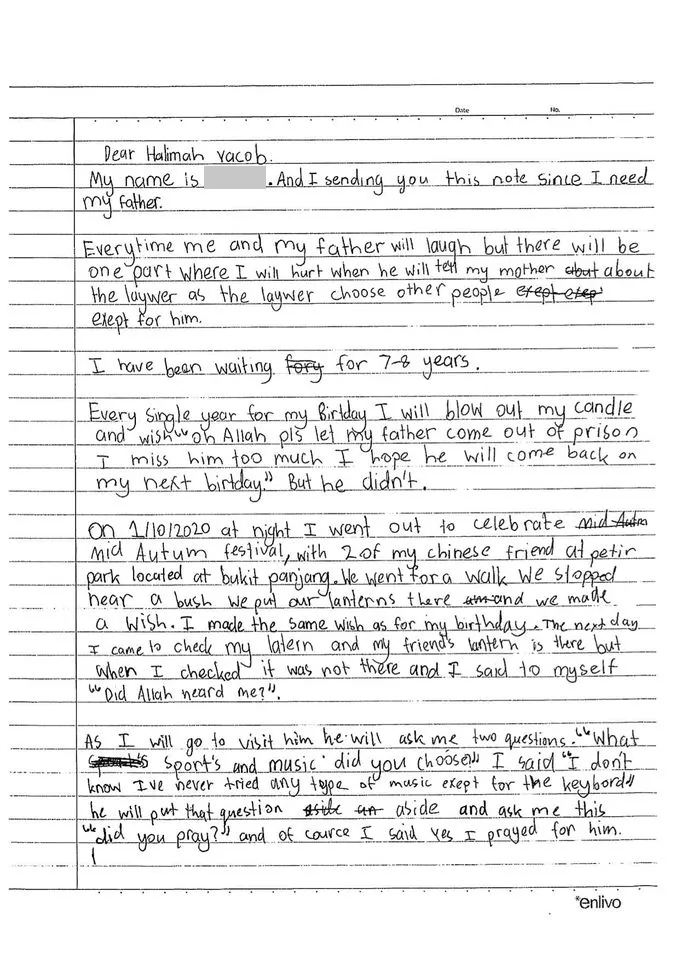 Date No.
Dear Halimah Yacob.
My name is . And I sending you this note since I need
my father.
Everytime me and my father will laugh but there will be
one part where I will hurt when he will tell my mother about about
the laywer as the laywer choose other people exept exep
exept for him.
I have been waiting fory for 7-8 years.
Every single year for my Birtday I will blow out my candle
and wish "oh Allah pls let my father come out of prison
I miss him too much I hope he will come back on
my next birtday." But he didn't.
On 1/10/2020 at night I went out to celebrate Mid Autm
Mid Autum festival, with 2 of my chinese friend at petir
park located at bukit panjang. We went for a walk We stopped
near a bush We put our lanterns there an and we made
a wish. I made the same wish as for my birthday. The next day
I came to check my latern and my friends lantern is there but
when I checked it was not there and I said to myself
"Did Allah heard me?".
As I will go to visit him he will ask me two questions. "What
sport's and music did you choose" I said "I don't
know I've never tried any type of music exept for the keybord"
he will put that question aside an aside and ask me this
"did you pray?" and of cource I said yes I prayed for him.
*enlivo